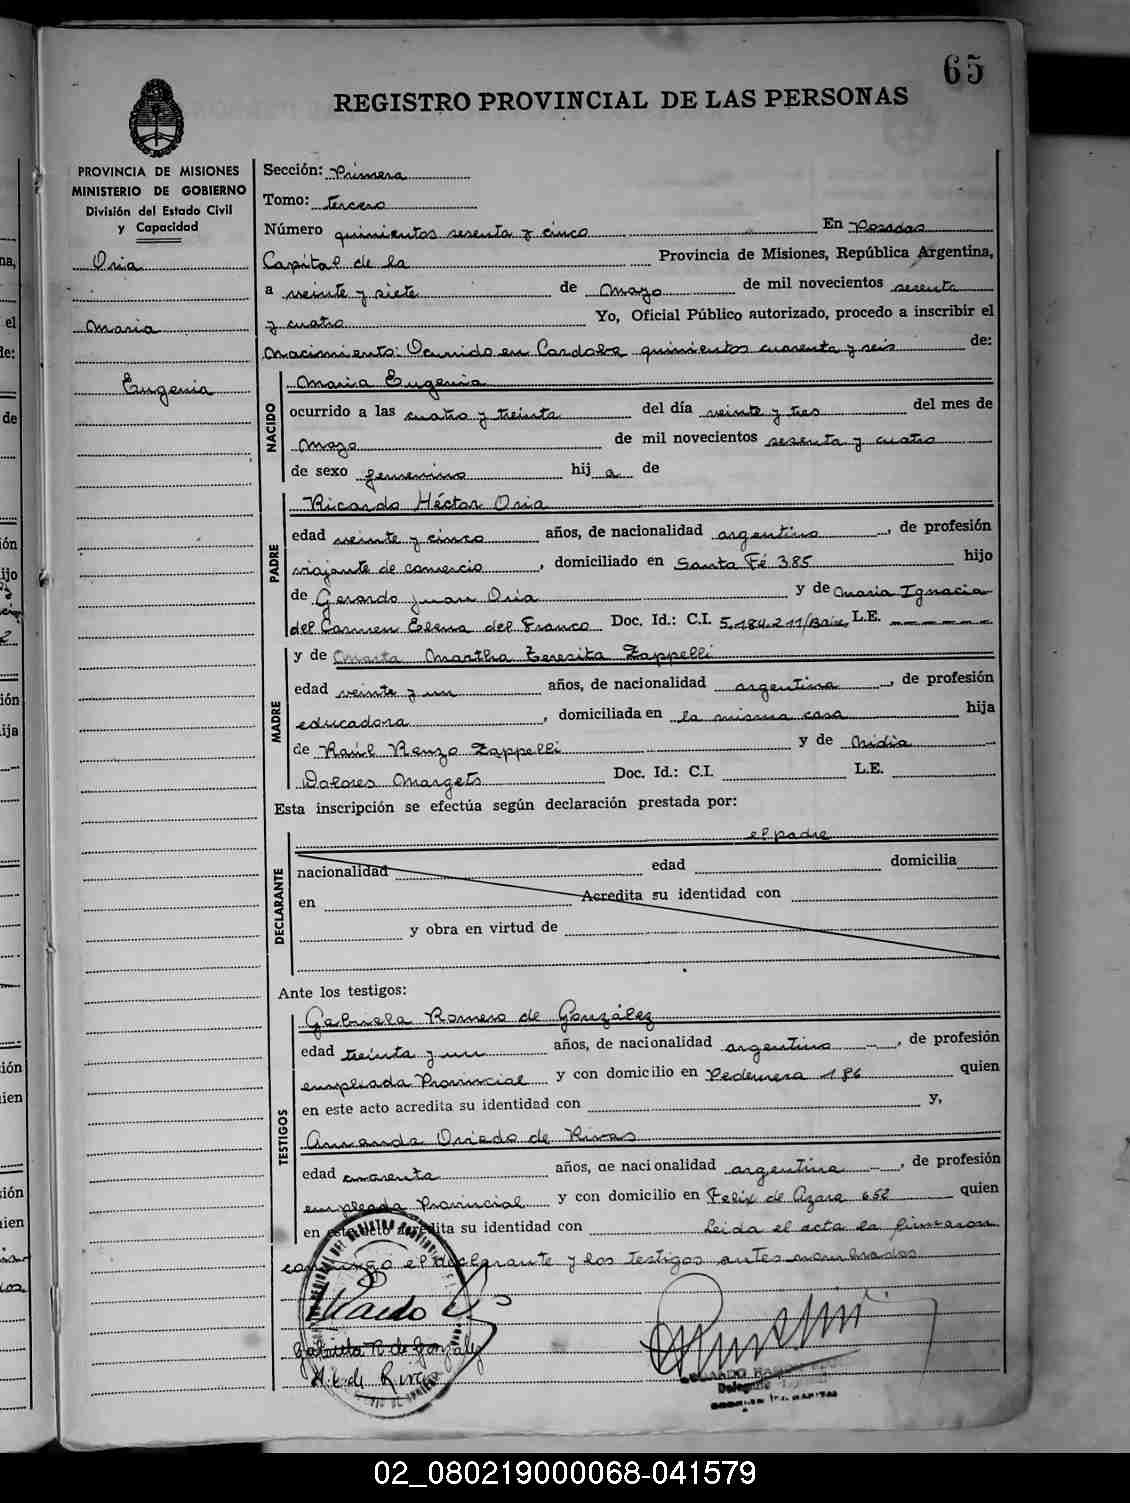 65
REGISTRO PROVINCIAL DE LAS PERSONAS
PROVINCIA DE MISIONES
MINISTERIO DE GOBIERNO
División del Estado Civil
y Capacidad
Oria
Maria
Eugenia
Sección: Primera
Tomo: tercero
Número quinientos sesenta y cinco En Posadas
Capital de la Provincia de Misiones, República Argentina,
a veinte y siete de Mayo de mil novecientos sesenta
y cuatro Yo, Oficial Público autorizado, procedo a inscribir el
nacimiento: Ocurrido en Cordoba quinientos cuarenta y seis de:
NACIDO
Maria Eugenia
ocurrido a las cuatro y treinta del día veinte y tres del mes de
Mayo de mil novecientos sesenta y cuatro
de sexo femenino hij a de
PADRE
Ricardo Héctor Oria
edad veinte y cinco años, de nacionalidad argentino, de profesión
viajante de comercio, domiciliado en Santa Fé 385 hijo
de Gerardo Juan Oria y de Maria Ignacia
del Carmen Elena del Franco Doc. Id.: C.I. 5.184.211 L.E.
MADRE
y de Martha Teresita Zappelli
edad veinte y un años, de nacionalidad argentina, de profesión
educadora, domiciliada en la misma casa hija
de Raúl Renzo Zappelli y de Nidia
Dolores Margets Doc. Id.: C.I. L.E.
Esta inscripción se efectúa según declaración prestada por:
DECLARANTE
el padre
nacionalidad edad domicilia
en Acredita su identidad con
y obra en virtud de
Ante los testigos:
TESTIGOS
Gabriela Romero de González
edad treinta y un años, de nacionalidad argentina, de profesión
empleada Provincial y con domicilio en Pedernera 186 quien
en este acto acredita su identidad con y,
Amanda Oviedo de Rivas
edad cuarenta años, de nacionalidad argentina, de profesión
empleada Provincial y con domicilio en Felix de Azara 652 quien
en este acto acredita su identidad con Leida el acta la firmaron
conmigo el declarante y los testigos antes nombrados
02_080219000068-041579